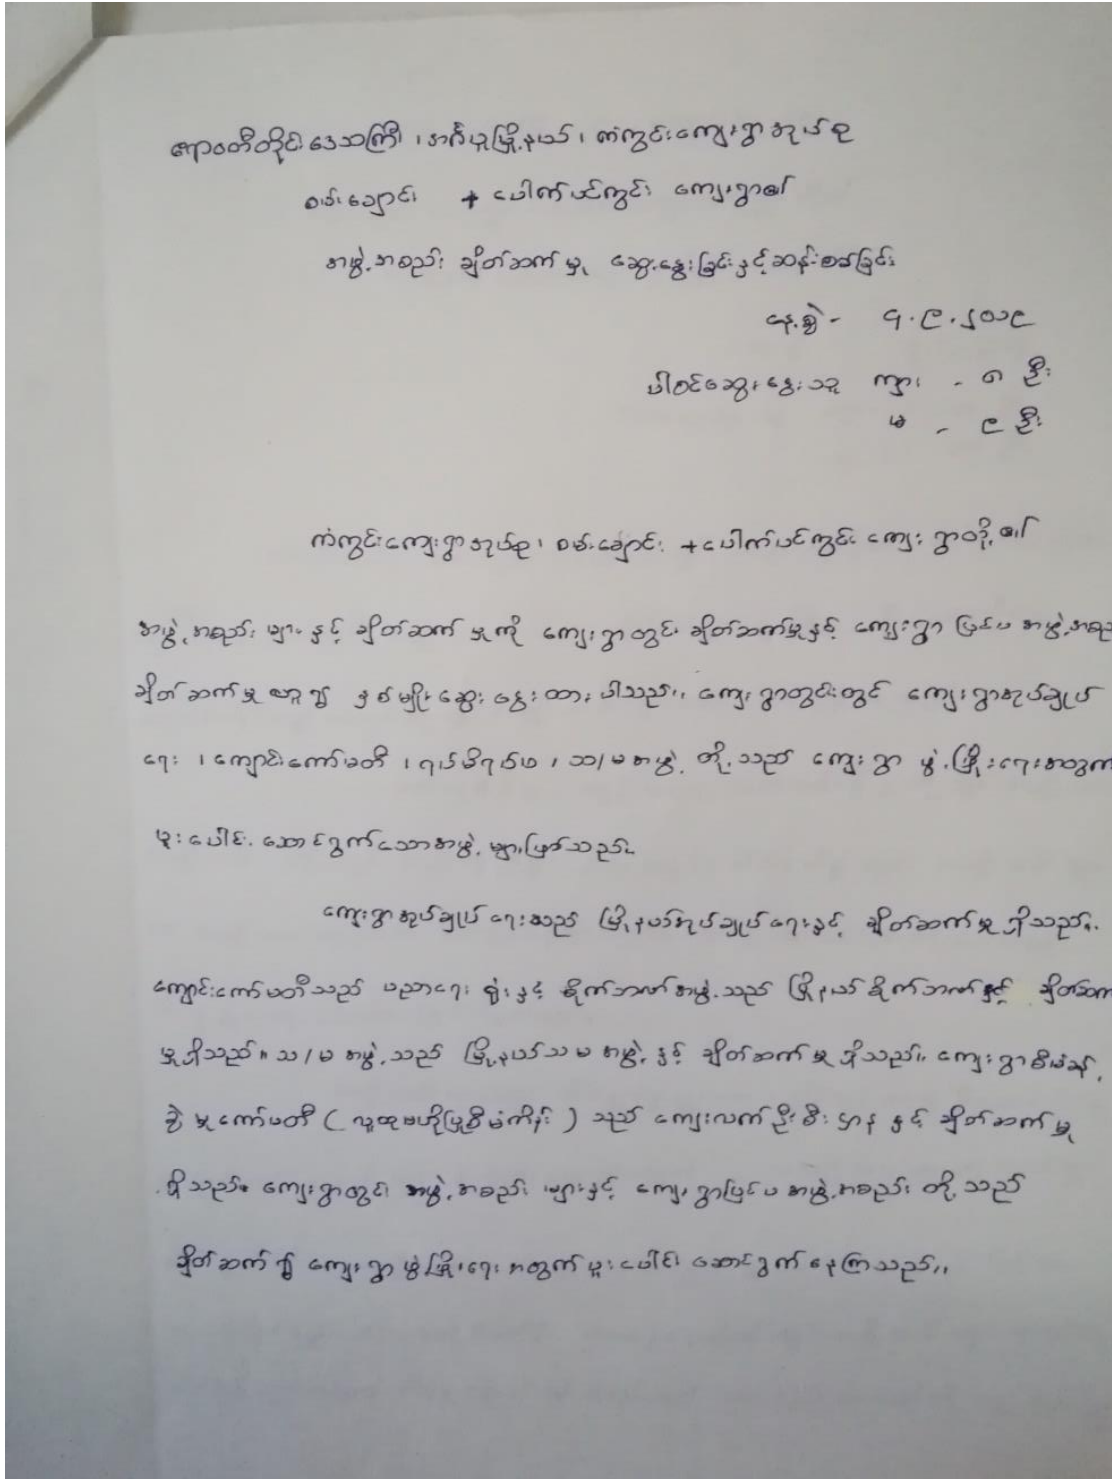 ဧရာဝတီတိုင်းဒေသကြီး ၊ အင်္ဂပူမြို့နယ် ၊ ကံကွင်းကျေးရွာအုပ်စု
စမ်းချောင်း + ပေါက်ပင်ကွင်း ကျေးရွာ၏
အဖွဲ့အစည်း ချိတ်ဆက်မှု ဆွေးနွေးခြင်းနှင့်ဆန်းစစ်ခြင်း
နေ့စွဲ - ၄.၉.၂၀၁၉
ပါဝင်ဆွေးနွေးသူ ကျား - ၈ ဦး
မ - ၉ ဦး
ကံကွင်းကျေးရွာအုပ်စု ၊ စမ်းချောင်း + ပေါက်ပင်ကွင်း ကျေးရွာတို့၏
အဖွဲ့အစည်းများနှင့် ချိတ်ဆက်မှုကို ကျေးရွာတွင်း ချိတ်ဆက်မှုနှင့် ကျေးရွာပြင်ပ အဖွဲ့အစည်
ချိတ်ဆက်မှု ဟူ၍ နှစ်မျိုးဆွေးနွေးထားပါသည်။ ကျေးရွာတွင်းတွင် ကျေးရွာအုပ်ချုပ်
ရေး ၊ ကျောင်းကော်မတီ ၊ ရပ်မိရပ်ဖ ၊ သ/မအဖွဲ့ တို့သည် ကျေးရွာ ဖွံ့ဖြိုးရေးအတွက်
ပူးပေါင်းဆောင်ရွက်သောအဖွဲ့များဖြစ်သည်။
ကျေးရွာအုပ်ချုပ်ရေးသည် မြို့နယ်အုပ်ချုပ်ရေးနှင့် ချိတ်ဆက်မှုရှိသည်။
ကျောင်းကော်မတီသည် ပညာရေးရုံးနှင့် စိုက်ဘဏ်အဖွဲ့သည် မြို့နယ်စိုက်ဘဏ်နှင့် ချိတ်ဆက်
မှုရှိသည်။ သ/မ အဖွဲ့သည် မြို့နယ်သမအဖွဲ့နှင့် ချိတ်ဆက်မှုရှိသည်။ ကျေးရွာစီမံခန့်
ခွဲမှုကော်မတီ ( လူထုဗဟိုပြုစီမံကိန်း ) သည် ကျေးလက်ဦးစီးဌာနနှင့် ချိတ်ဆက်မှု
ရှိသည်။ ကျေးရွာတွင်း အဖွဲ့အစည်းများနှင့် ကျေးရွာပြင်ပအဖွဲ့အစည်းတို့သည်
ချိတ်ဆက်၍ ကျေးရွာဖွံ့ဖြိုးရေးအတွက် ပူးပေါင်းဆောင်ရွက်နေကြသည်။